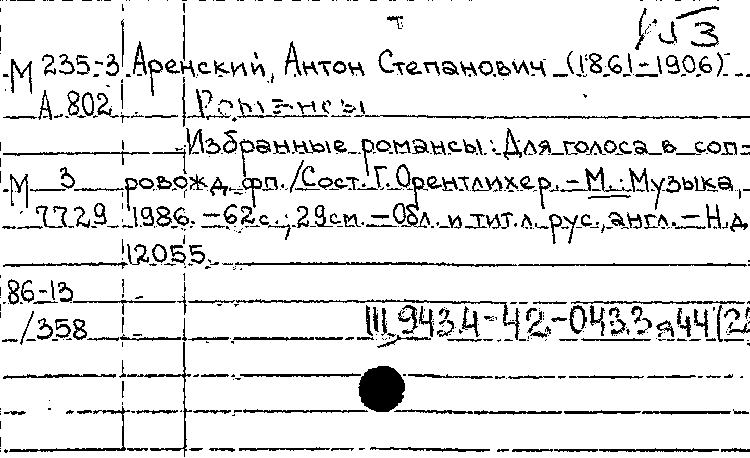 М 235-3 Аренский, Антон Степанович (1861-1906)
А 802 Романсы
Избранные романсы: Для голоса в соп-
М 3 ровожд. фп./Сост. Г. Орентлихер. – М.: Музыка,
7729 1986. – 62 с.; 29 см. – Обл. и тит. л. рус., англ. – Н.д.
12055.
86-13
/358 Ш 943.4-42-043.3 я44(2